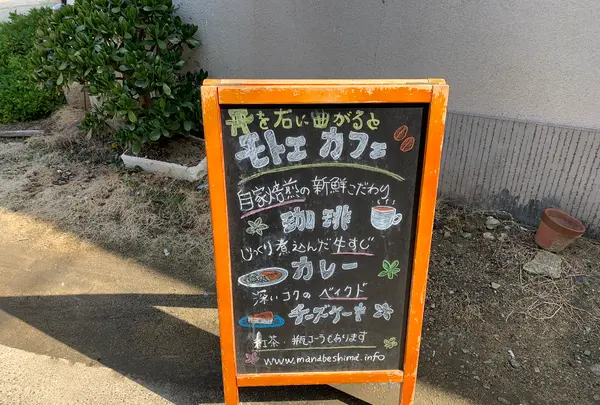 を右に曲がると
モトエカフェ
自家焙煎の新鮮こだわり
珈琲
じっくり煮込んだ牛すじ
カレー
深いコクのベイクド
チーズケーキ
紅茶・瓶コーラもあります
www.mandbeshima.info